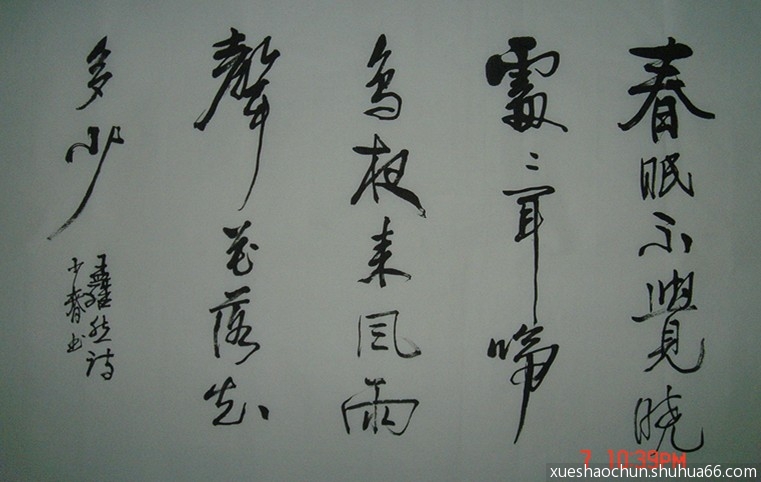 春眠不覺曉
處々聞啼
鸟夜来风雨
聲花落知
多少
然诗
少春书
7 10:39PM
xueshaochun.shuhua66.com